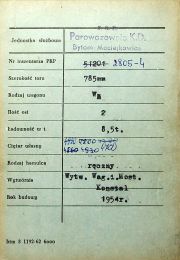 P. K. P.
Jednostka służbowa Parowozownia K.D.
Bytom Maciejkowice
Nr inwentarza PKP 51201 2805-4
Szerokość toru 785mm
Rodzaj wagonu
Ilość osi 2
Ładowność w t 8,5t.
Ciężar własny
Rodzaj hamulca ręczny
Wytwórnia Wytw. Wag.i.Most.
Konstal
Rok budowy 1954r.